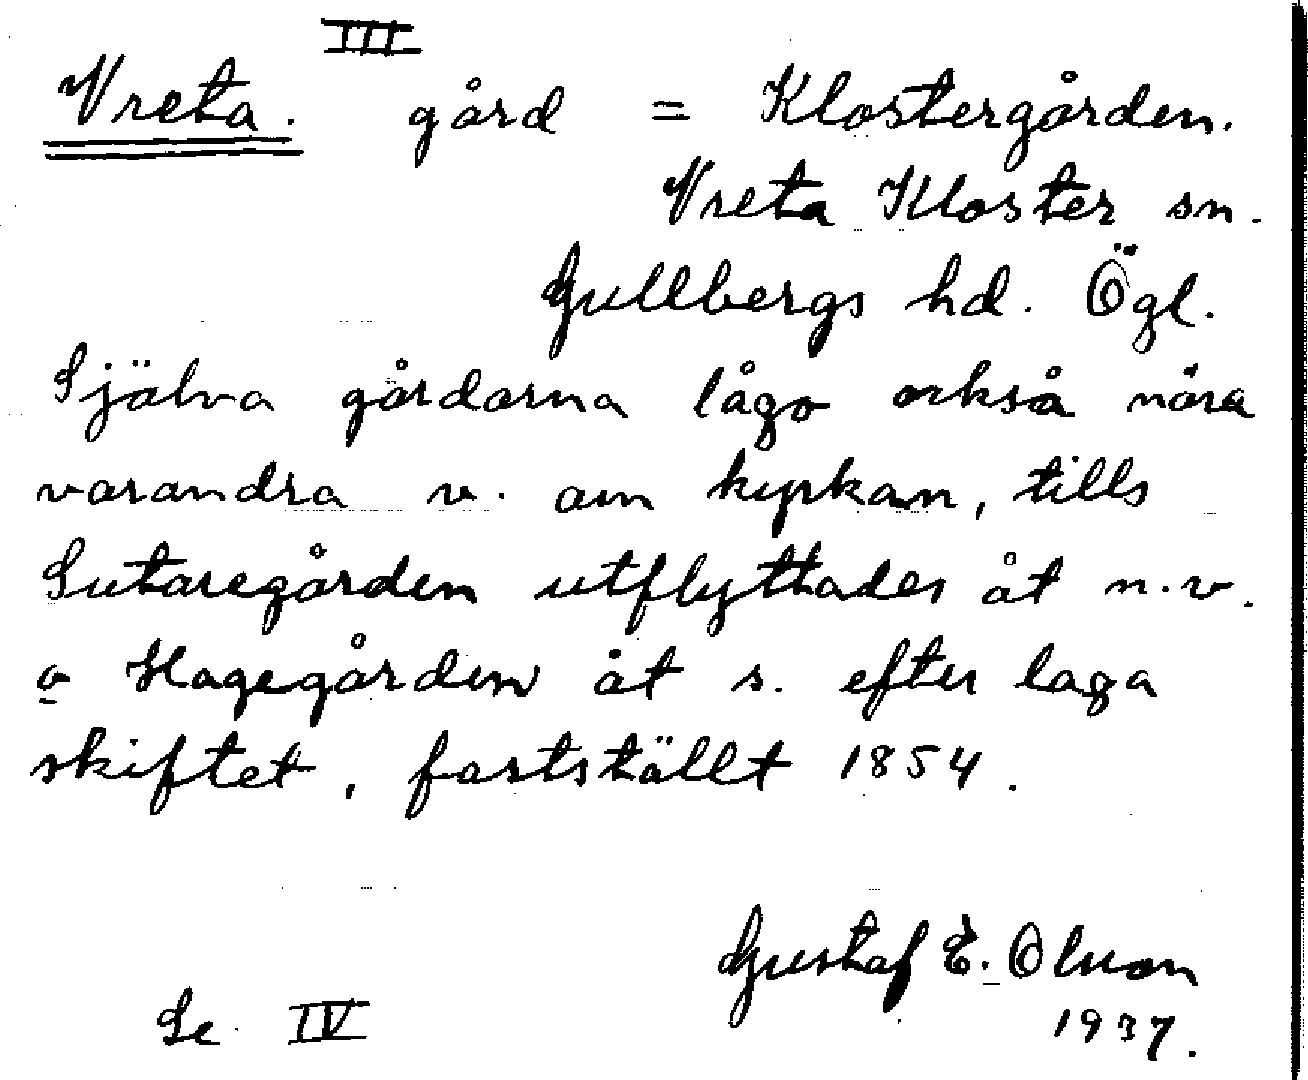 III
Vreta. gård = Klostergården.
Vreta Kloster sn.
Gullbergs hd. Ögl.
Själva gårdarna lågo också nära
varandra v. om kyrkan, tills
Sutaregården utflyttades åt n.v.
o Hagegården åt s. efter laga
skiftet, fastställt 1854.
Gustaf E. Olsson
Se IV
1937.